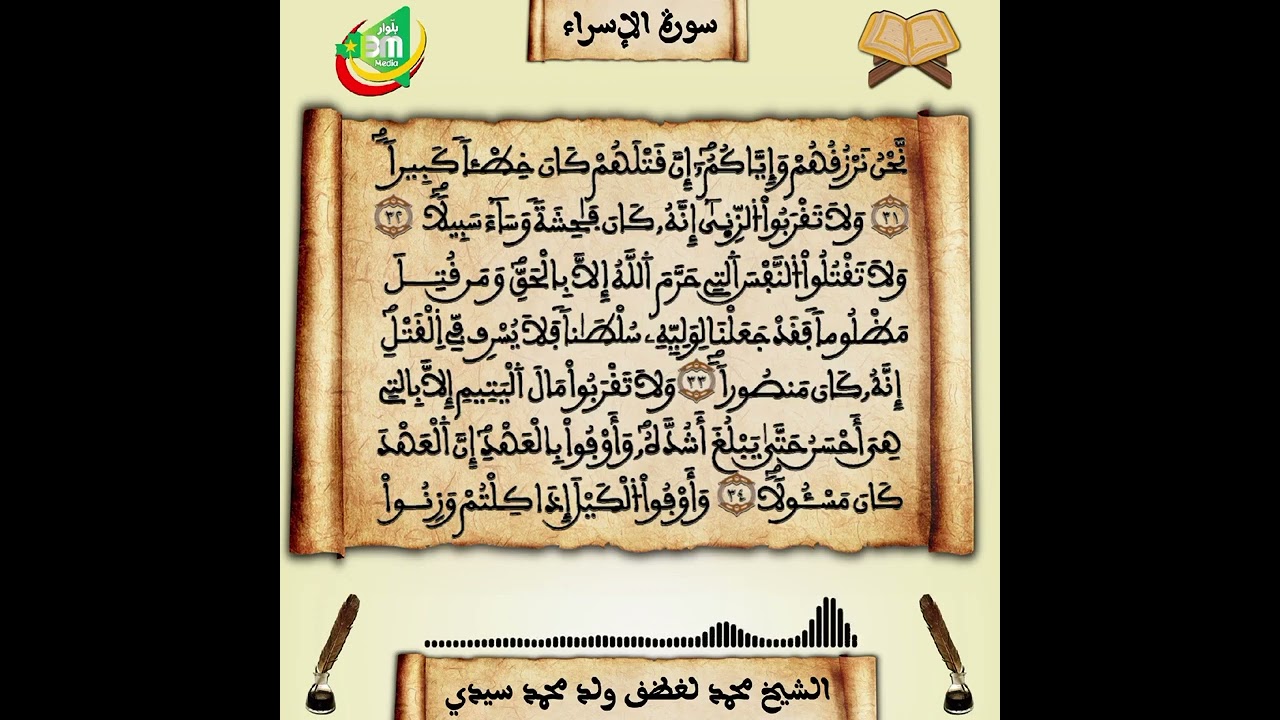 سورة الإسراء
بلوار
BM
Media
نَّحْنُ نَرْزُقُهُمْ وَإِيَّاكُمُۥٓ إِنَّ قَتْلَهُمْ كَانَ خِطْـٔاً كَبِيراً
٣١ وَلَا تَقْرَبُواْ اُلزِّنٜىٰٓ إِنَّهُۥ كَانَ فَٰحِشَةً وَسَآءَ سَبِيلًا ٣٢
وَلَا تَقْتُلُواْ اُلنَّفْسَ اَلتِے حَرَّمَ اَللَّهُ إِلَّا بِالْحَقِّ وَمَن قُتِلَ
مَظْلُوماً فَقَدْ جَعَلْنَا لِوَلِيِّهِۦ سُلْطَٰناً فَلَا يُسْرِف فِّے اِلْقَتْلِ
إِنَّهُۥ كَانَ مَنصُوراً ٣٣ وَلَا تَقْرَبُواْ مَالَ اَلْيَتِيمِ إِلَّا بِالتِے
هِيَ أَحْسَنُ حَتَّىٰ يَبْلُغَ أَشُدَّهُۥ وَأَوْفُواْ بِالْعَهْدِ إِنَّ اَلْعَهْدَ
كَانَ مَسْـُٔولًا ٣٤ وَأَوْفُواْ اُلْكَيْلَ إِذَا كِلْتُمْ وَزِنُواْ
الشيخ محمد لغظف ولد محمد سيدي